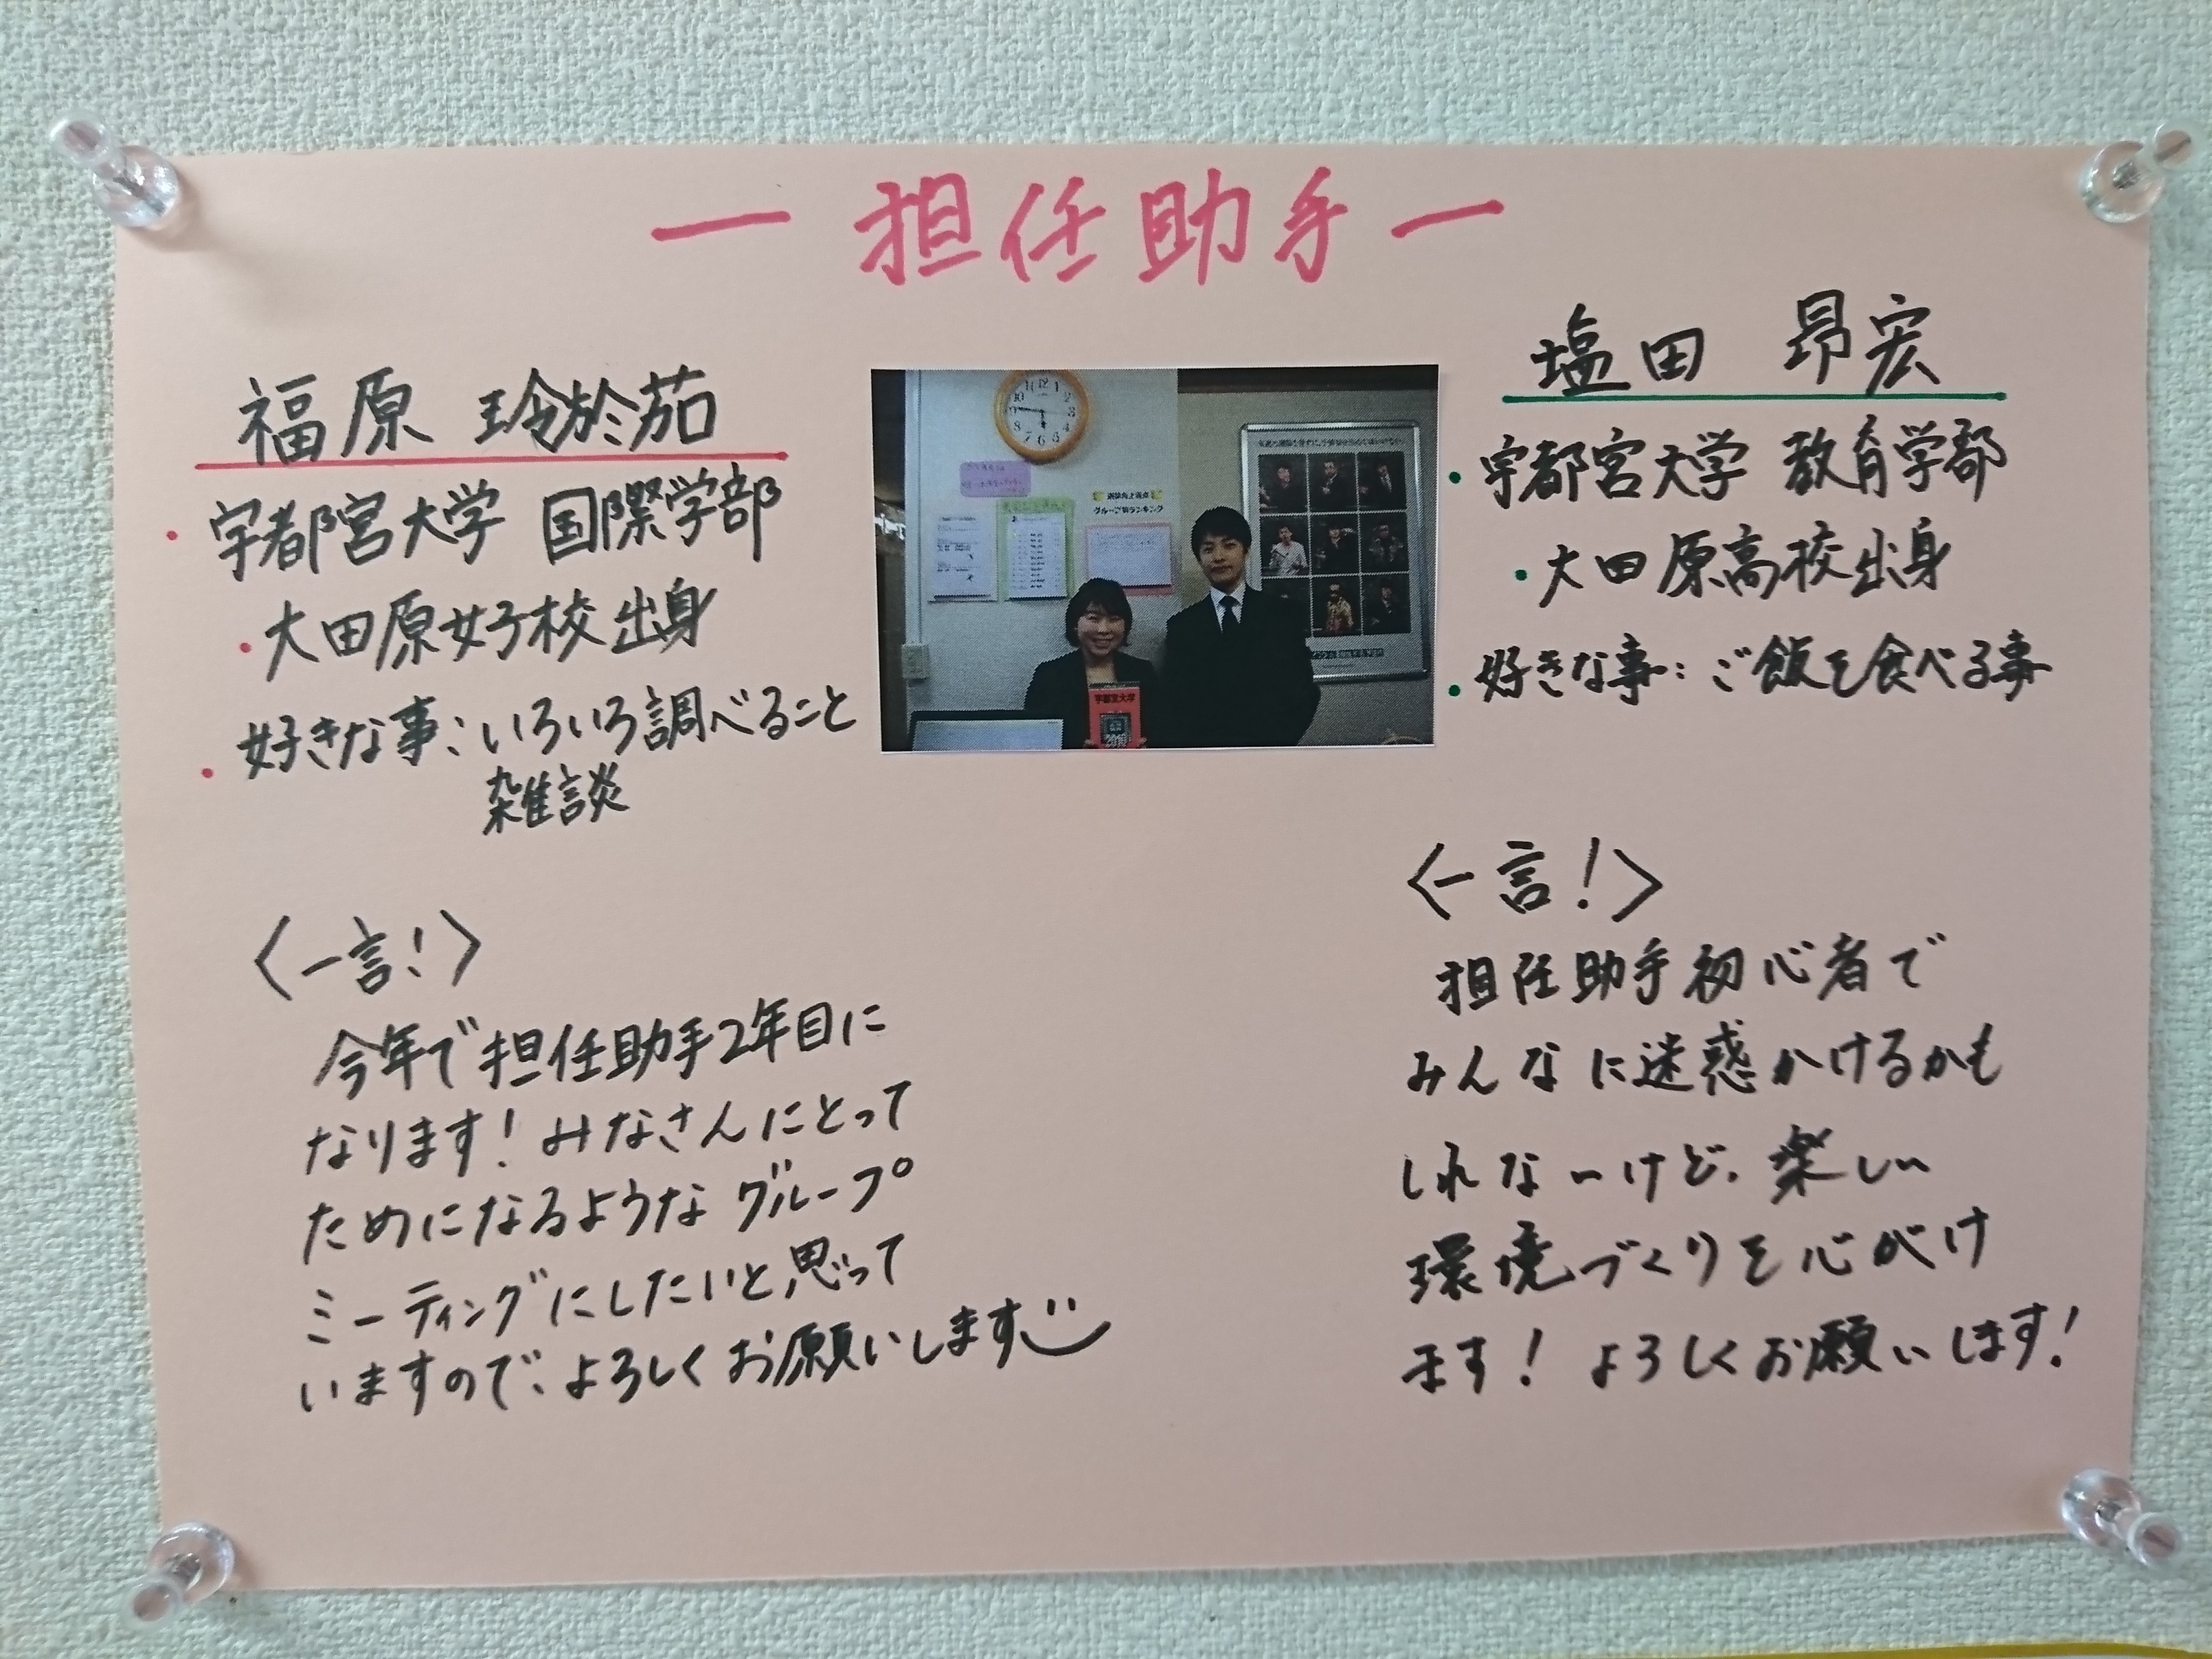 ー担任助手ー
福原 玲於茄
・宇都宮大学 国際学部
・大田原女子校出身
・好きな事:いろいろ調べること
雑談
〈一言!〉
今年で担任助手2年目に
なります!みなさんにとって
ためになるようなグループ
ミーティングにしたいと思って
いますので、よろしくお願いします
塩田 昂宏
・宇都宮大学 教育学部
・大田原高校出身
・好きな事:ご飯を食べる事
〈一言!〉
担任助手初心者で
みんなに迷惑かけるかも
しれないけど、楽しい
環境づくりを心がけ
ます!よろしくお願いします!
グループ別ランキング
宇都宮大学